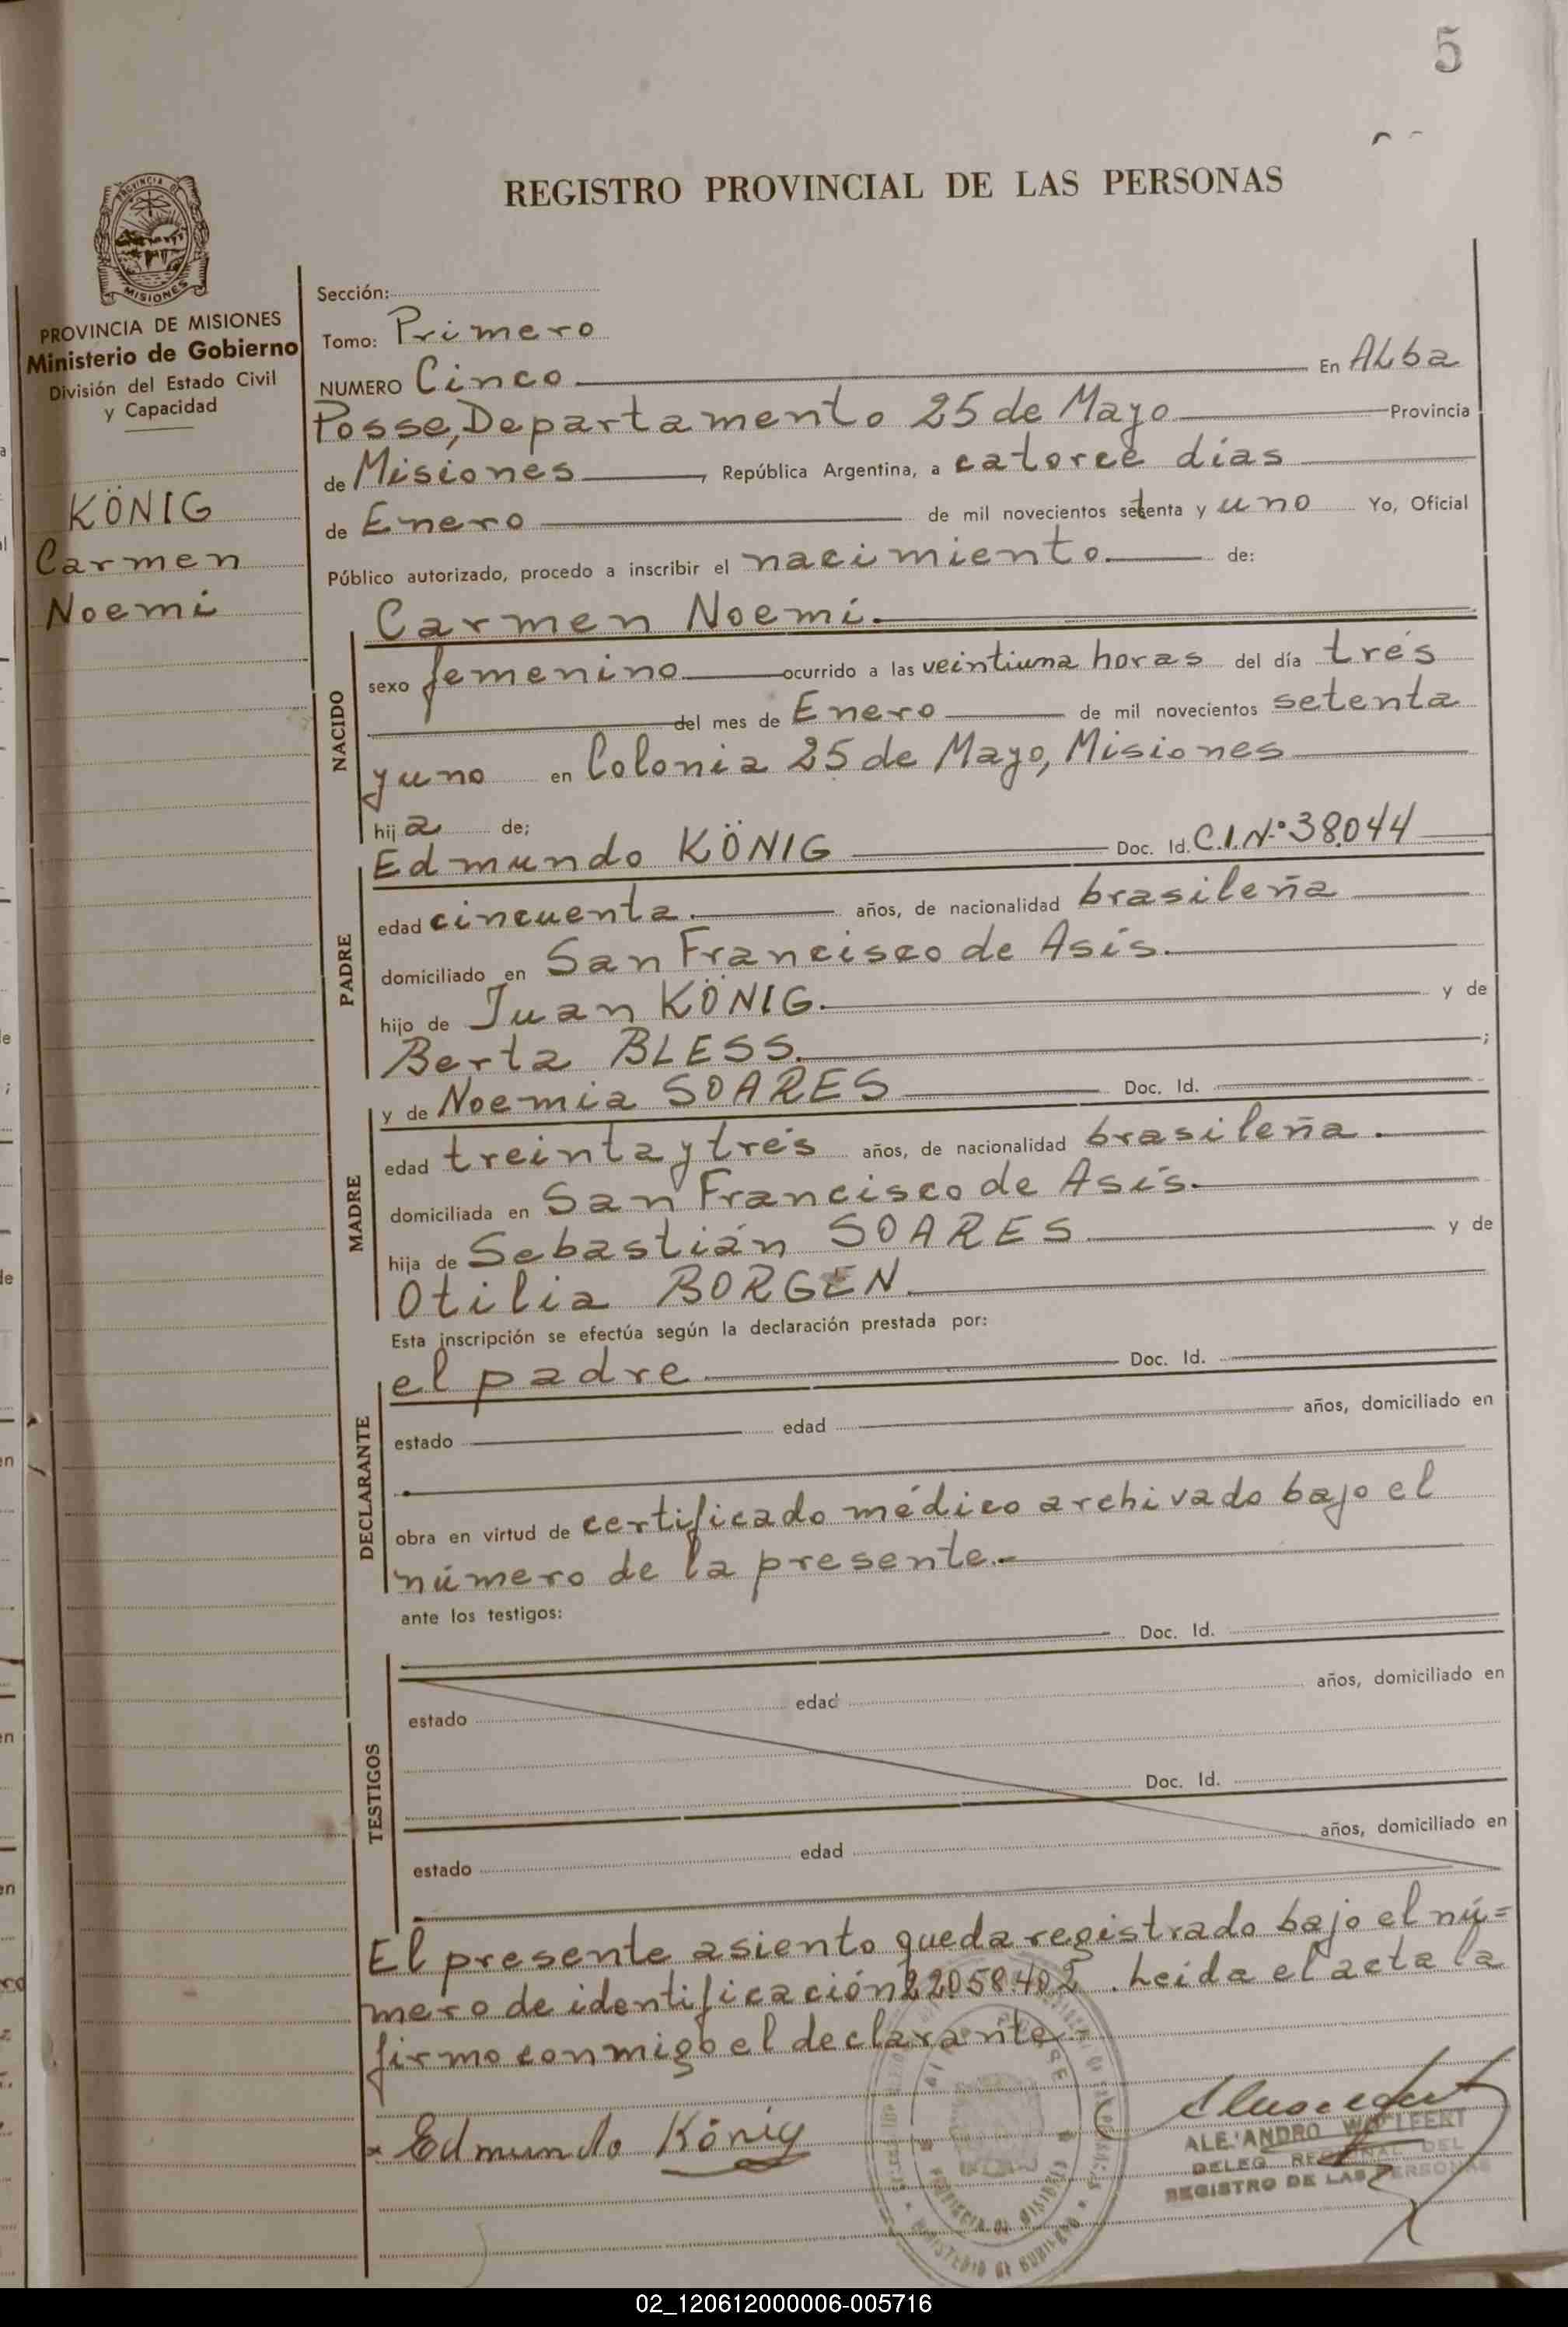 5
REGISTRO PROVINCIAL DE LAS PERSONAS
PROVINCIA DE
MISIONES
PROVINCIA DE MISIONES
Ministerio de Gobierno
División del Estado Civil
y Capacidad
KÖNIG
Carmen
Noemi
Sección:
Tomo: Primero
NUMERO Cinco En Alba
Posse, Departamento 25 de Mayo Provincia
de Misiones, República Argentina, a catorce días
de Enero de mil novecientos setenta y uno Yo, Oficial
Público autorizado, procedo a inscribir el nacimiento. de:
Carmen Noemí.
NACIDO
sexo femenino ocurrido a las veintiuna horas del día trés
del mes de Enero de mil novecientos setenta
y uno en Colonia 25 de Mayo, Misiones
hija de;
PADRE
Edmundo KÖNIG Doc. Id. C.I.Nº 38.044
edad cincuenta. años, de nacionalidad brasileña
domiciliado en San Francisco de Asís.
hijo de Juan KÖNIG. y de
Berta BLESS. ;
MADRE
y de Noemia SOARES Doc. Id.
edad treinta y trés años, de nacionalidad brasileña.
domiciliada en San Francisco de Asís.
hija de Sebastián SOARES y de
Otilia BORGEN.
Esta inscripción se efectúa según la declaración prestada por:
DECLARANTE
el padre Doc. Id.
estado edad años, domiciliado en
obra en virtud de certificado médico archivado bajo el
número de la presente.-
ante los testigos:
TESTIGOS
Doc. Id.
estado edad años, domiciliado en
Doc. Id.
estado edad años, domiciliado en
El presente asiento queda registrado bajo el nú=
mero de identificación 22.058.402. Leida el acta la
firmo conmigo el declarante.-
Edmundo König
ALEJANDRO
DELEG. REGIONAL DEL
REGISTRO DE LAS PERSONAS
PROVINCIA DE MISIONES
MINISTERIO DE GOBIERNO
02_120612000006-005716